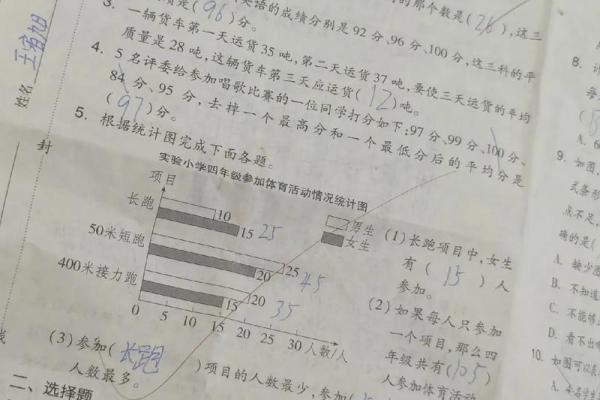 的那个数是(26),这三
质是(96)分。
3.
英语的成绩分别是92分、96分、100分,这三科的平
一辆货车第一天运货35吨,第二天运货37吨,要使三天运货的平均
质量是28吨,这辆货车第三天应运货(12)吨。
4. 5名评委给参加唱歌比赛的一位同学打分如下:97分、99分、100分、
84分、95分,去掉一个最高分和一个最低分后的平均分是
(97)分。
5. 根据统计图完成下面各题。
实验小学四年级参加体育活动情况统计图
项目
长跑
10
15 25
50米短跑
25
20 45
400米接力跑
20
15 35
0 5 10 15 20 25 30 人数/人
男生
女生
(1)长跑项目中,女生
有(15)人
参加。
(2)如果每人只参加
一个项目,那么四
年级共有(105)
人参加体育活动
(3)参加(长跑)项目的人数最少,参加(
人数最多。
二、选择题
姓名
封
线
8.
A. 6
9. 如图,
式条形
点不足,
确的是(
A. 缺少
B. 不知道
C. 不能够
D. 看不出
10. 如图可以表
A. 4名学生